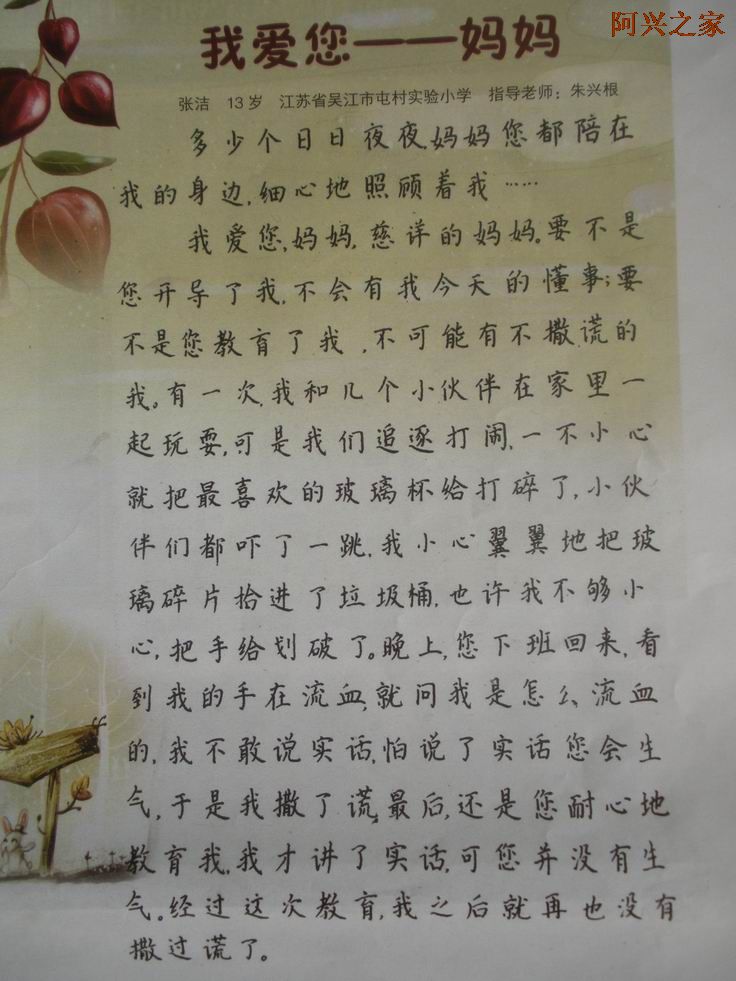 阿兴之家
我爱您——妈妈
张洁 13岁 江苏省吴江市屯村实验小学 指导老师：朱兴根
多少个日日夜夜,妈妈您都陪在
我的身边,细心地照顾着我……
我爱您,妈妈,慈详的妈妈。要不是
您开导了我,不会有我今天的懂事;要
不是您教育了我,不可能有不撒谎的
我。有一次,我和几个小伙伴在家里一
起玩耍,可是我们追逐打闹,一不小心
就把最喜欢的玻璃杯给打碎了,小伙
伴们都吓了一跳,我小心翼翼地把玻
璃碎片拾进了垃圾桶,也许我不够小
心,把手给划破了。晚上,您下班回来,看
到我的手在流血,就问我是怎么流血
的,我不敢说实话,怕说了实话您会生
气,于是我撒了谎,最后,还是您耐心地
教育我,我才讲了实话,可您并没有生
气。经过这次教育,我之后就再也没有
撒过谎了。